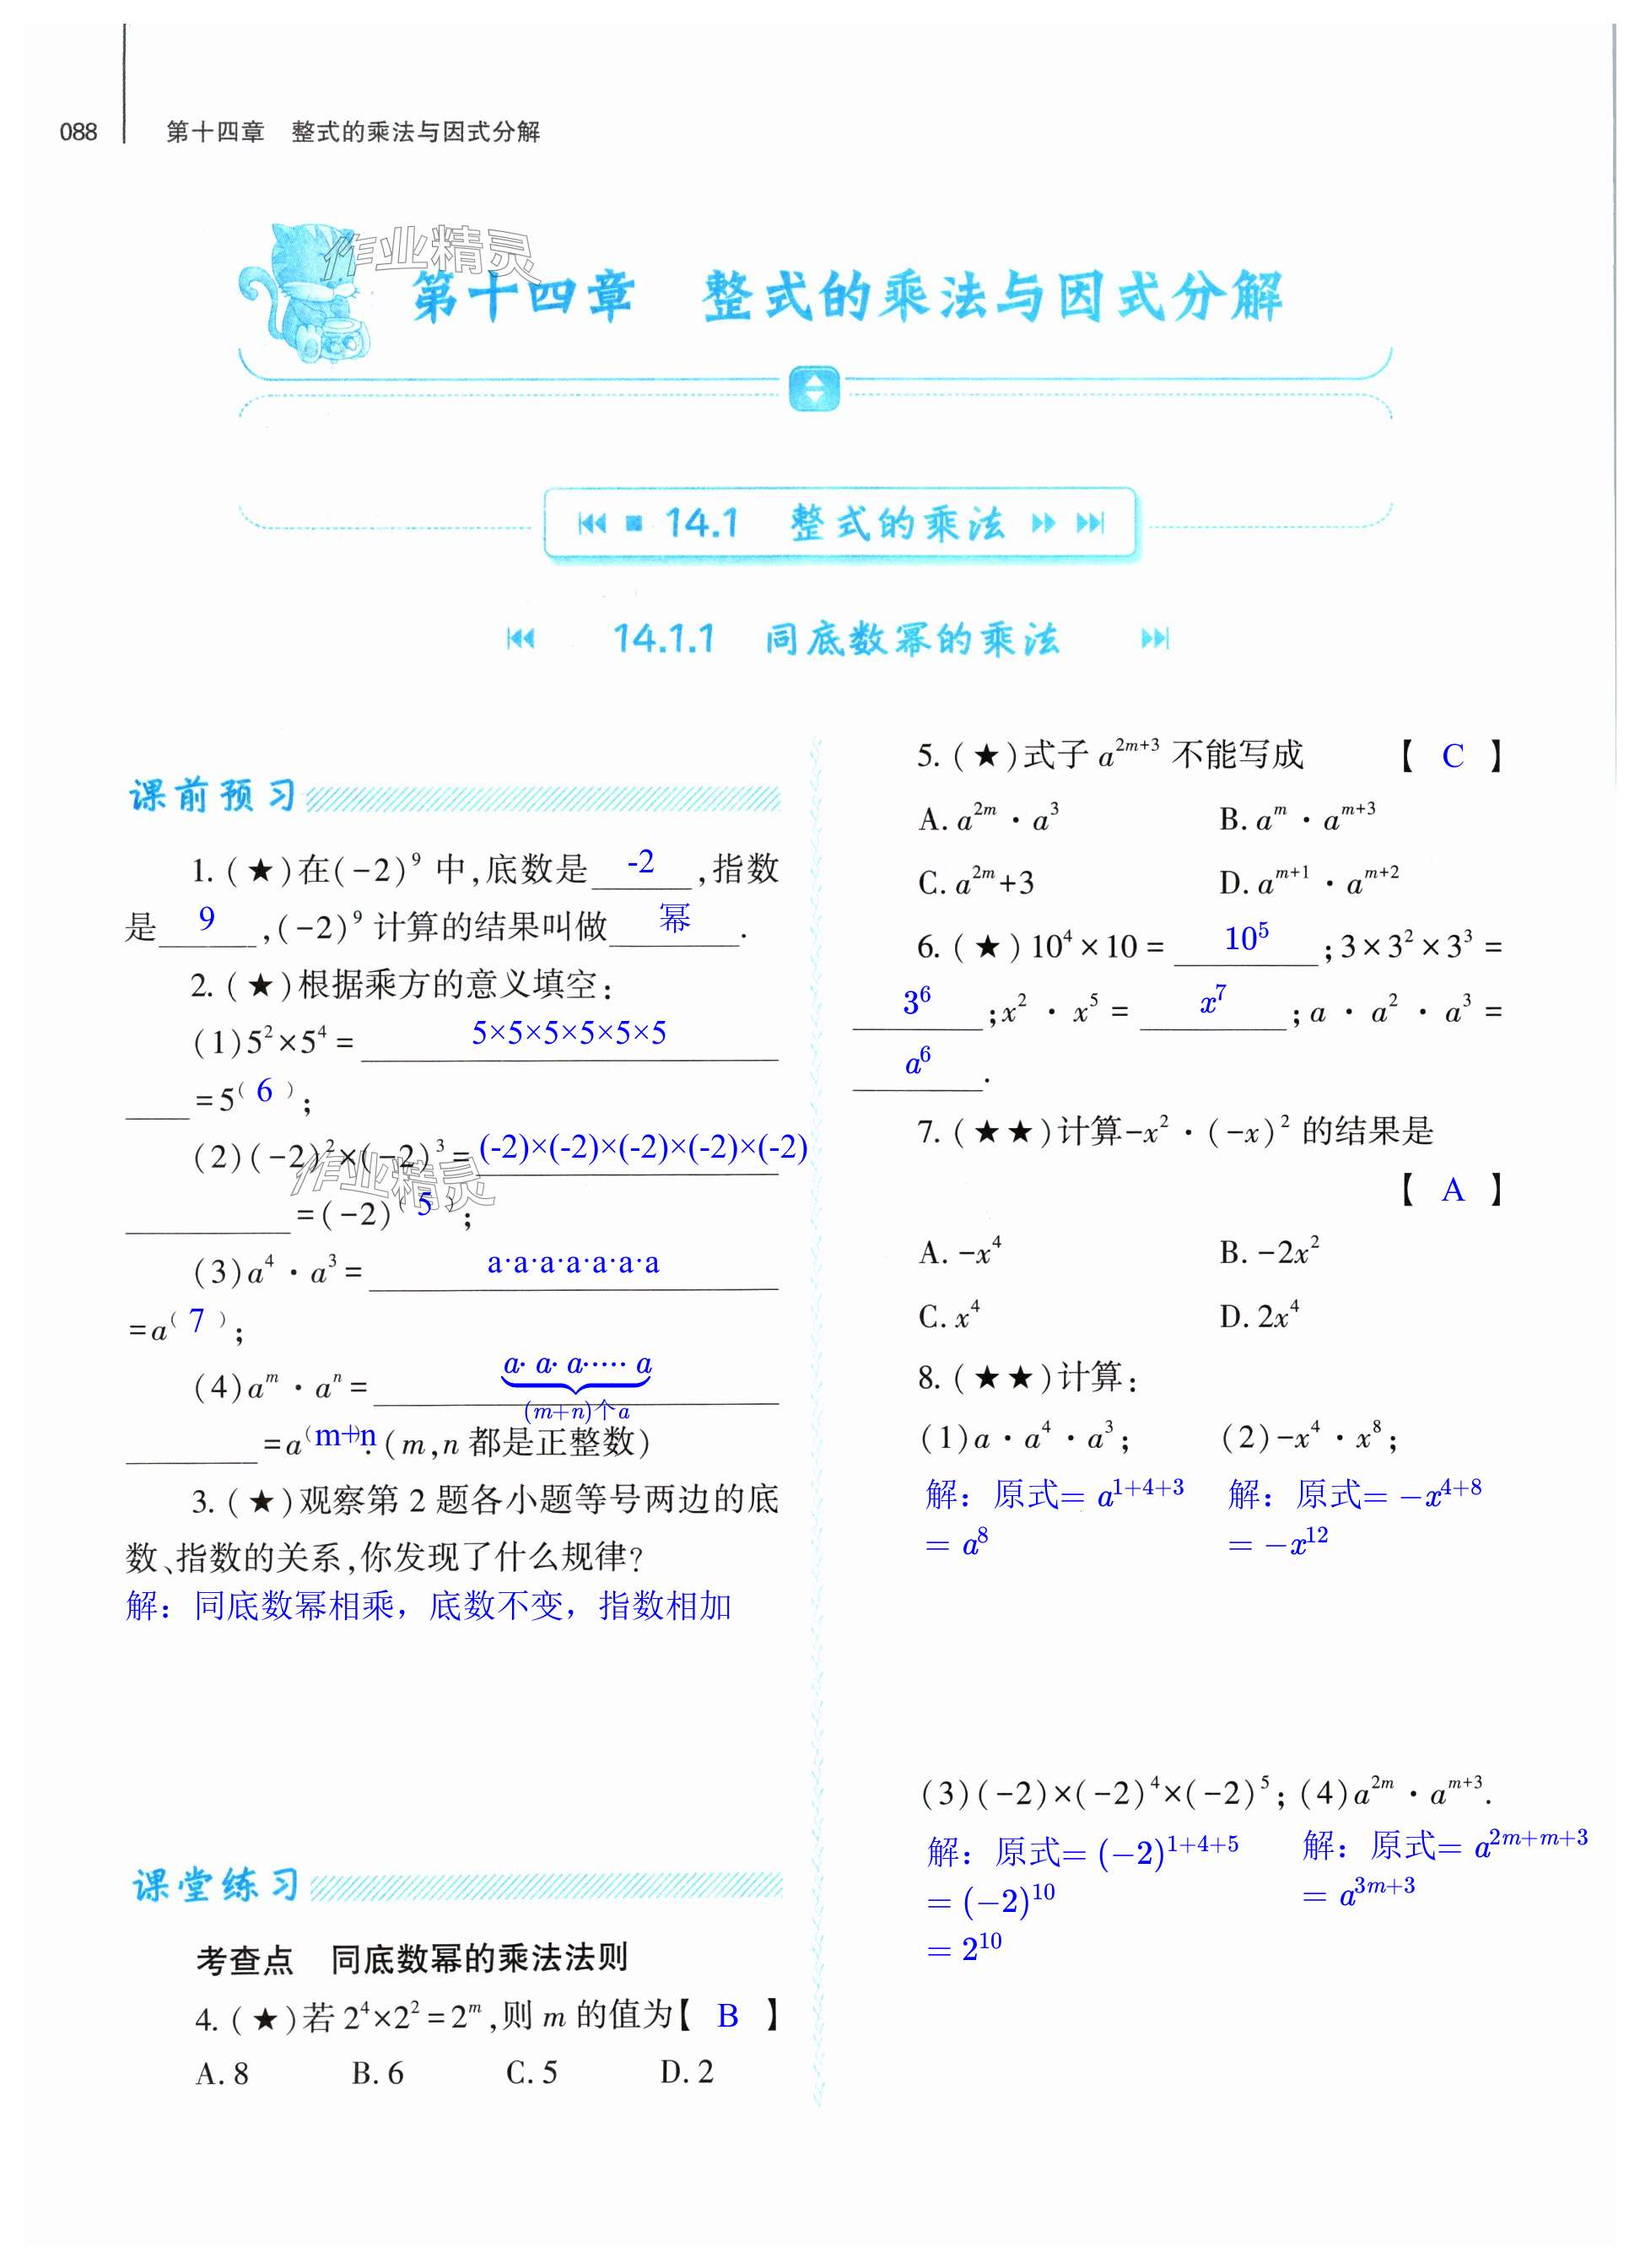 088 第十四章 整式的乘法与因式分解
作业精灵
第十四章 整式的乘法与因式分解
14.1 整式的乘法
14.1.1 同底数幂的乘法
课前预习
1. (★)在(-2)⁹ 中,底数是 -2 ,指数
是 9 ,(-2)⁹ 计算的结果叫做 幂 .
2. (★)根据乘方的意义填空:
(1)5²×5⁴= 5×5×5×5×5×5
____ =5⁽ 6 ⁾;
(2)(-2)²×(-2)³= (-2)×(-2)×(-2)×(-2)×(-2)
作业精灵
____ =(-2)⁽ 5 ⁾;
(3)a⁴·a³= a·a·a·a·a·a·a
=a⁽ 7 ⁾;
(4)aᵐ·aⁿ= a· a· a····· a
(m+n)个a
____ =a⁽ m+n ⁾.(m,n 都是正整数)
3. (★)观察第 2 题各小题等号两边的底
数、指数的关系,你发现了什么规律?
解：同底数幂相乘，底数不变，指数相加
课堂练习
考查点 同底数幂的乘法法则
4. (★)若 2⁴×2²=2ᵐ,则 m 的值为【 B 】
A. 8 B. 6 C. 5 D. 2
5. (★)式子 a²ᵐ⁺³ 不能写成 【 C 】
A. a²ᵐ·a³ B. aᵐ·aᵐ⁺³
C. a²ᵐ+3 D. aᵐ⁺¹·aᵐ⁺²
6. (★)10⁴×10= 10⁵ ;3×3²×3³=
3⁶ ;x²·x⁵= x⁷ ;a·a²·a³=
a⁶ .
7. (★★)计算-x²·(-x)² 的结果是
【 A 】
A. -x⁴ B. -2x²
C. x⁴ D. 2x⁴
8. (★★)计算:
(1)a·a⁴·a³; (2)-x⁴·x⁸;
解：原式= a¹⁺⁴⁺³ 解：原式= -x⁴⁺⁸
= a⁸ = -x¹²
(3)(-2)×(-2)⁴×(-2)⁵; (4)a²ᵐ·aᵐ⁺³.
解：原式= (-2)¹⁺⁴⁺⁵ 解：原式= a²ᵐ⁺ᵐ⁺³
= (-2)¹⁰ = a³ᵐ⁺³
= 2¹⁰